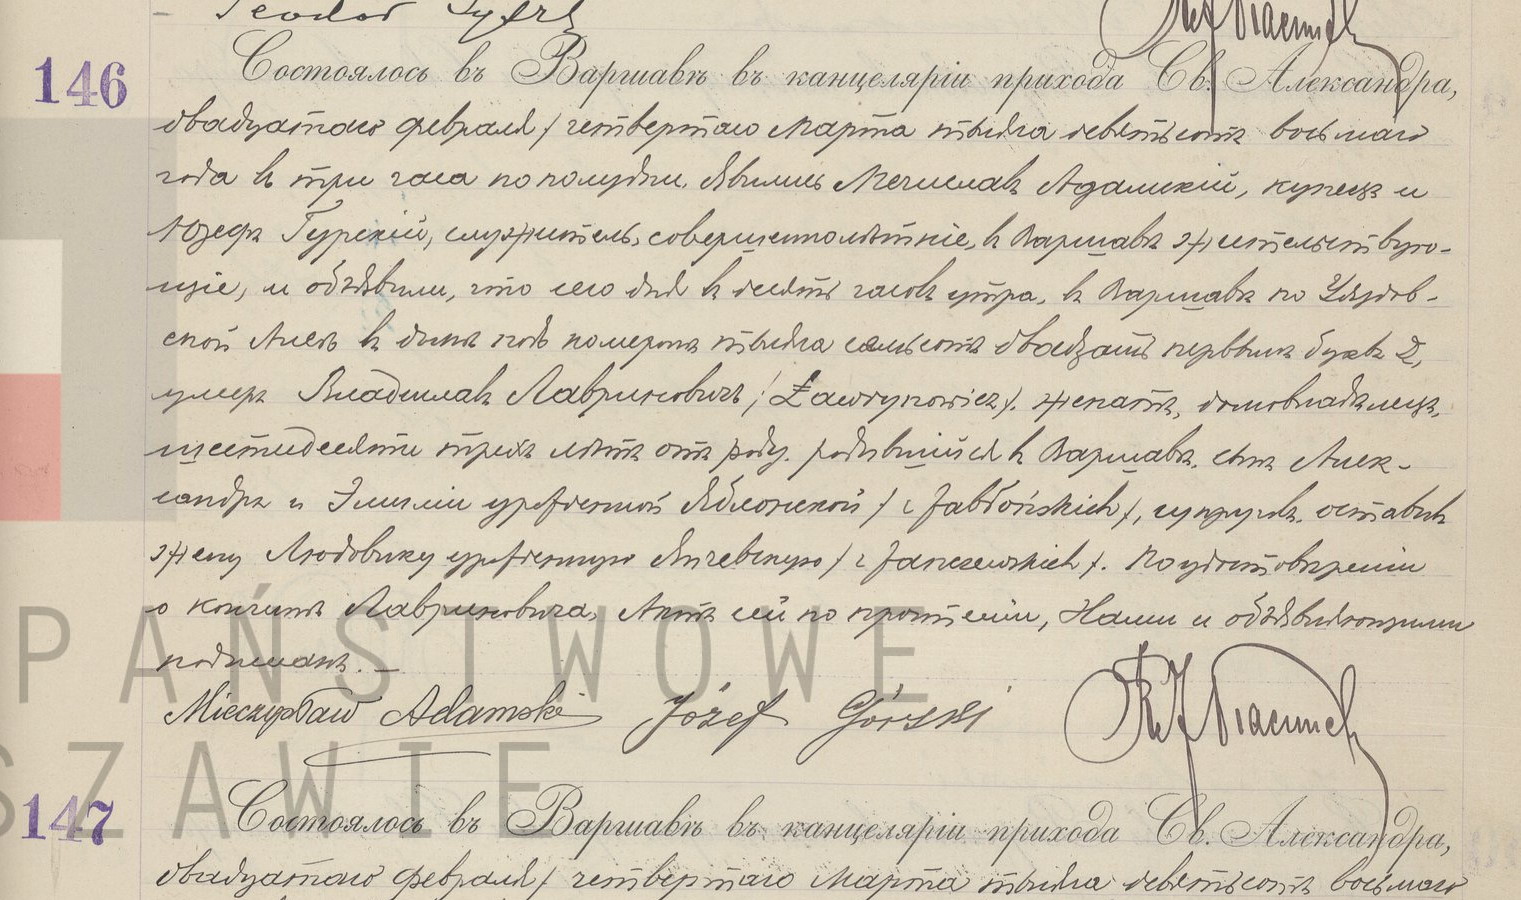 Teodor
146
Состоялось въ Варшавѣ въ канцеляріи прихода Св. Александра,
двадцатаго февраля / четвертаго Марта тысяча девятьсотъ восьмаго
года въ три часа пополудни. Явились Мечиславъ Адамскій, купецъ и
Юзефъ Гурскій, служитель, совершеннолѣтніе, въ Варшавѣ жительствую-
щіе, и объявили, что сего дня въ десять часовъ утра, въ Варшавѣ по Уяздов-
ской Аллеѣ въ домѣ подъ номеромъ тысяча семьсотъ двадцать первымъ буквъ
умеръ Владиславъ Лавриновичъ / Ławrynowicz /. женатъ, домовладѣлецъ,
шестидесяти трехъ лѣтъ отъ роду. родившійся въ Варшавѣ, сынъ Алек-
сандра и Эмиліи урожденной Яблонской / z Jabłońskich /, супруговъ. оставивъ
жену Людовику урожденную Янчевскую / z Janczewskich /. По удостовѣреніи
о кончинѣ Лавриновича, Актъ сей по прочтеніи, Нами и объявляющими
подписанъ. —
Mieczysław Adamski Józef Górski
PAŃSTWOWE
SZAWIE
147
Состоялось въ Варшавѣ въ канцеляріи прихода Св. Александра,
двадцатаго февраля / четвертаго Марта тысяча девятьсотъ восьмаго